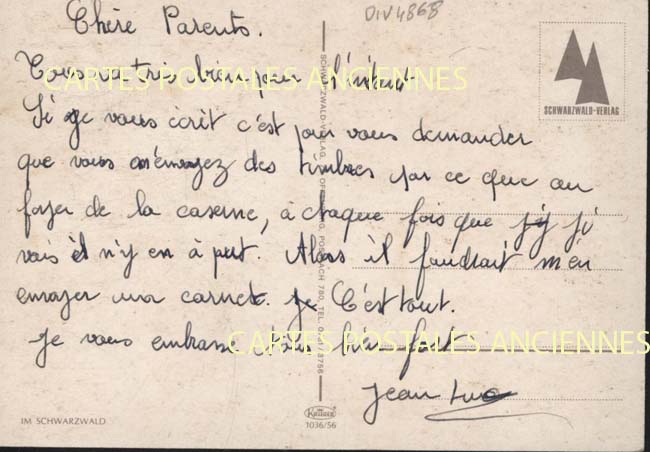 DIV4868
Chère Parents.
Tous va tris bien pour l'instant
CARTES POSTALES ANCIENNES
Si je vous écrit c'est pour vous demander
que vous m'envoyez des timbres par ce que au
foyer de la caserne, à chaque fois que j'y
vais il n'y en à put. Alors il faudrait m'en
envoyer un carnet. C'est tout.
CARTES POSTALES ANCIENNES
Je vous embrasse bien fort
Jean Luc
SCHWARZWALD-VERLAG
SCHWARZWALD-VERLAG, POSTFACH 780, TEL.
IM SCHWARZWALD
Kruger
1036/56